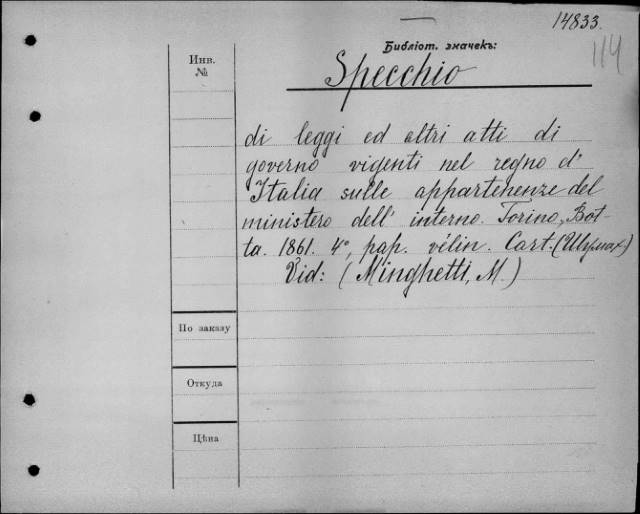 14833.
114
Библіот. значекъ:
Инв.
№
Specchio
di leggi ed altri atti di
governo vigenti nel regno d'
Italia sulle appartenenze del
ministero dell' interno. Torino, Bot-
ta. 1861. 4°, pap. vélin. Cart.
Vid: (Minghetti, M.)
По заказу
Откуда
Цѣна